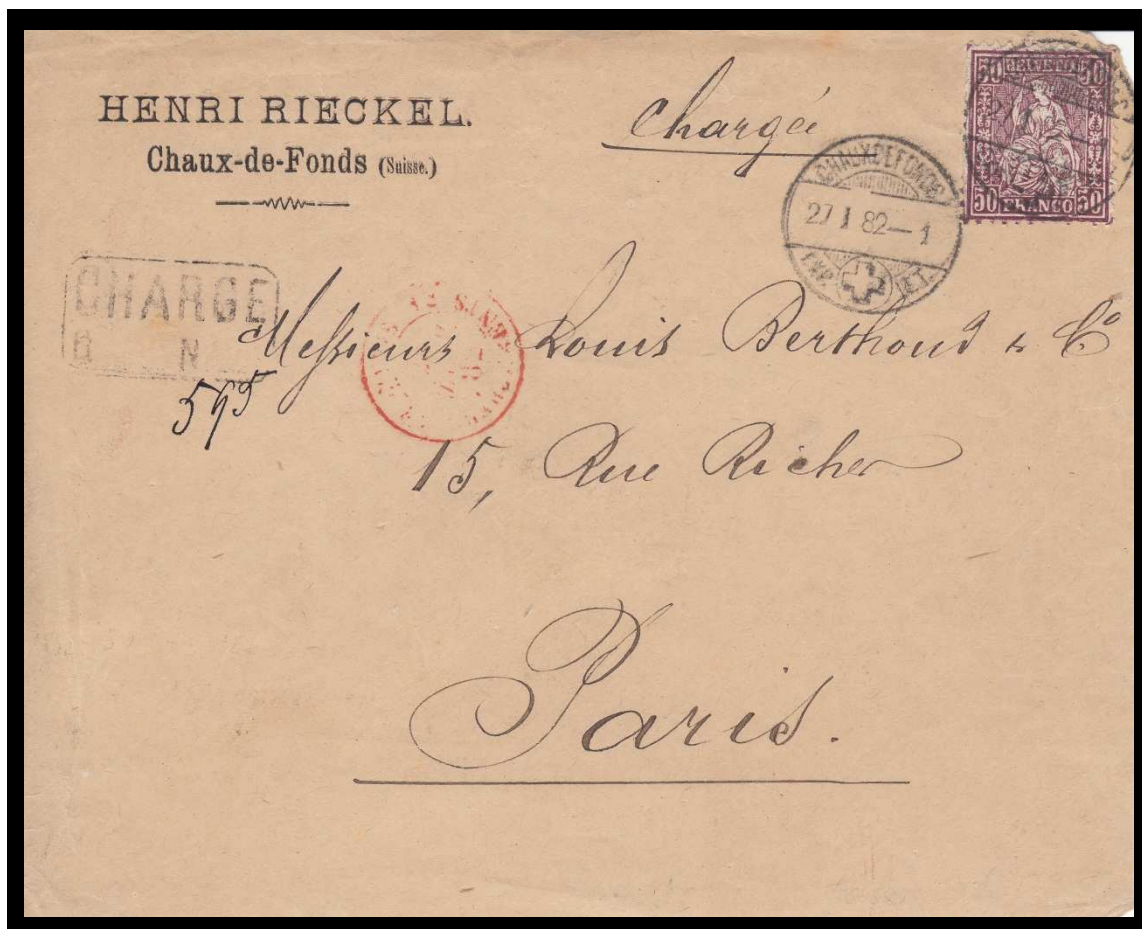 HENRI RIECKEL.
Chaux-de-Fonds (Suisse.)
Chargée
50 HELVETIA 50
50 FRANCO 50
CHAUXDEFONDS
27 I 82—1
EXP. LET.
CHARGÉ
N
595
Messieurs Louis Berthoud & Cº
15, Rue Richer
Paris.